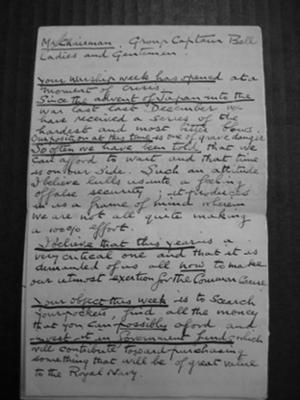 Mr Chairman. Group Captain Ball
Ladies and Gentlemen.
Your Warship week has opened at a
moment of crisis.
Since the advent of Japan into the
war last December we
have received a series of the
hardest and most bitter blows
Our position at this time is one of grave danger
So often we have been told that we
can afford to wait and that time
is on our side. Such an attitude
I believe lulls us into a feeling
of false security. It produces
in us a frame of mind wherein
we are not all quite making
a 100% effort.
I believe that this year is a
very critical one and that it is
demanded of us all now to make
our utmost exertion for the Common Cause.
Your object this week is to search
your pockets, find all the money
that you can possibly afford and
invest it in Government funds, which
will contribute toward purchasing
something that will be of great value
to the Royal Navy.